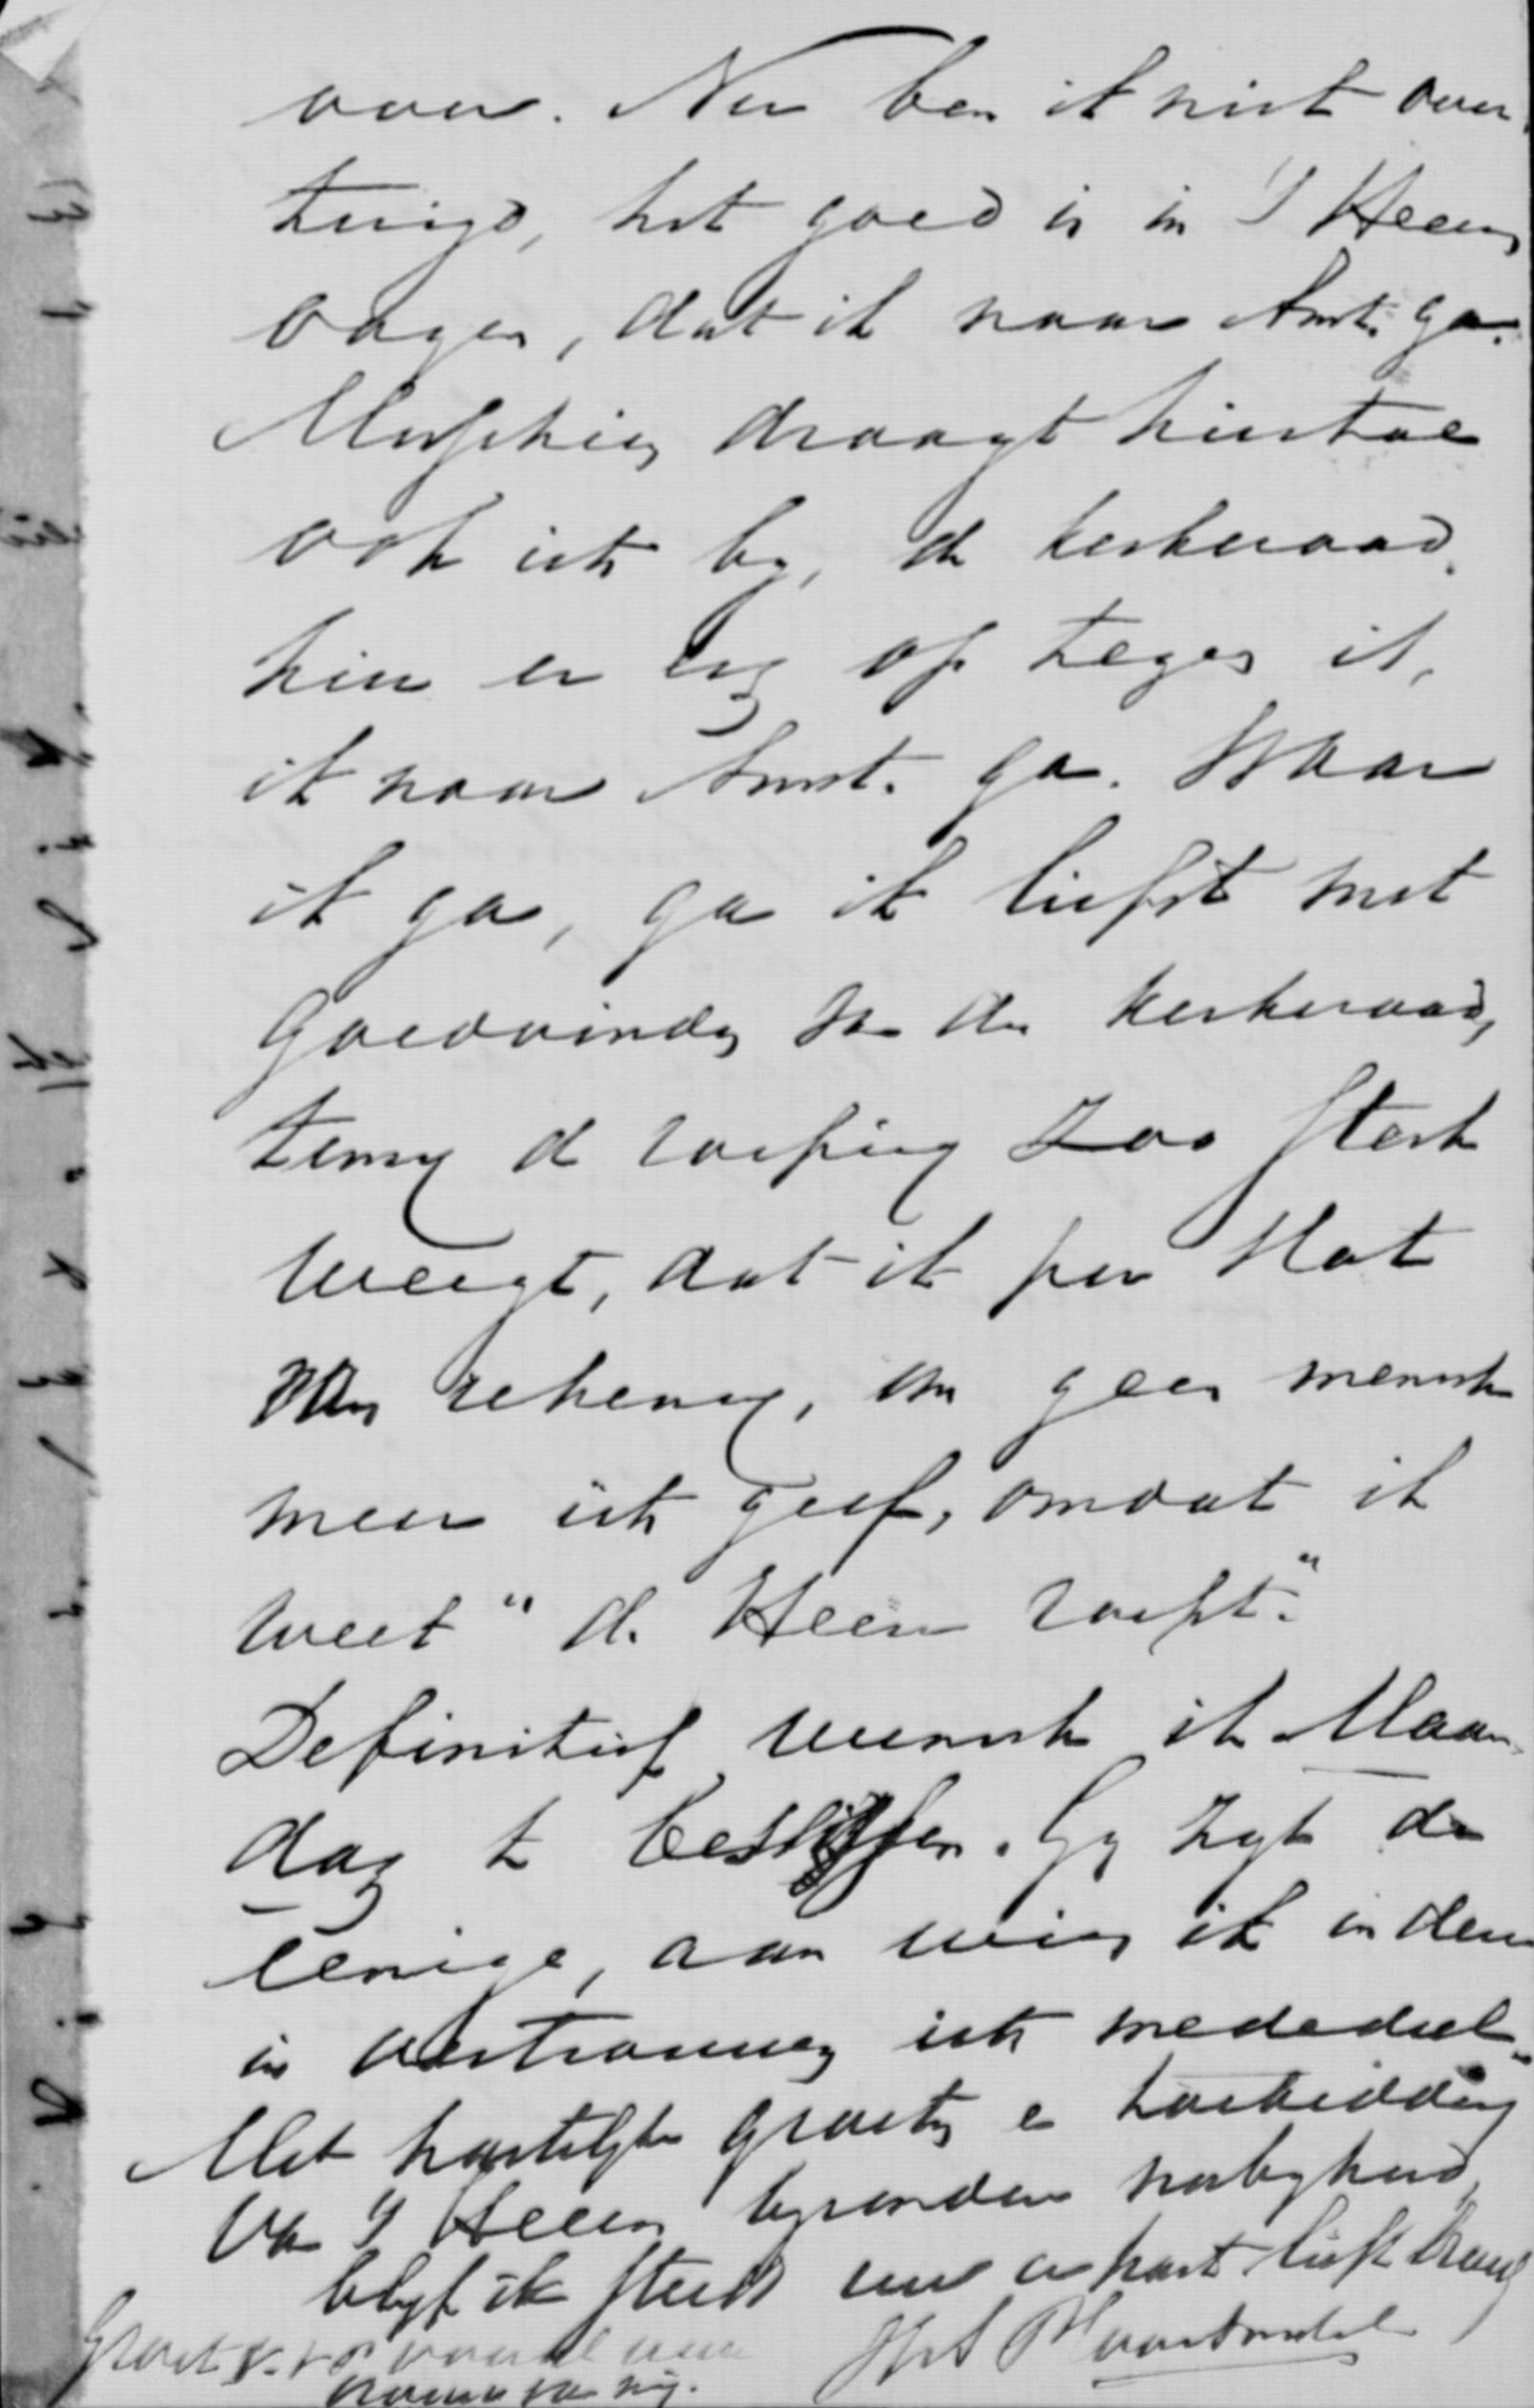 voor. Nu ben ik niet over
tuigd, het goed is in 's Heeren
oogen, dat ik naar Amst. ga.
Misschien draagt hiertoe
ook iets by, de kerkeraad
hier er erg op tegen is,
ik naar Amst. ga. Waar
ik ga, ga ik liefst met
goedvinden van den kerkeraad,
tenzij de roeping zoo sterk
weegt, dat ik per slot
van rekening, om geen mensch
meer iets geef, omdat ik
weet "de Heere roept."
Definitief wensch ik Maan
dag te beslissen. Gy zyt de
eenige, aan wien ik in dezen
in vertrouwen iets mededeel.
Met hartelyke groeten e toebidding
van 's Heeren byzondere nabyheid,
blyf ik steeds uw
Groet
vrouw van my.